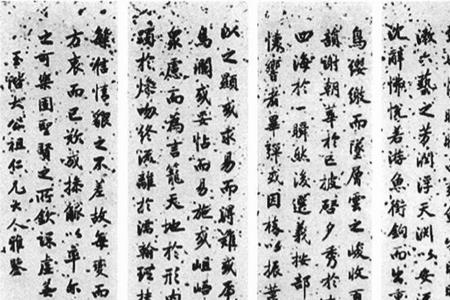 漱六藝之芳潤浮天淵以安
沈辭怫悅若游魚銜鉤而出重
鳥纓繳而墜層雲之峻收百
韻謝朝華於已披啓夕秀於
四海於一瞬然後選義按部
懷響者畢彈或因枝以振葉
以之顯或求易而得難或虎
鳥瀾或妥怗而易施或岨峿
眾慮而為言籠天地於形內
躅於燥吻終流離於濡翰理扶
繁信情貌之不差故每變而
方哀而已歎或操觚以率尔
之可樂固聖賢之所欽課虛無
玉階大公祖仁兄大人雅鑒